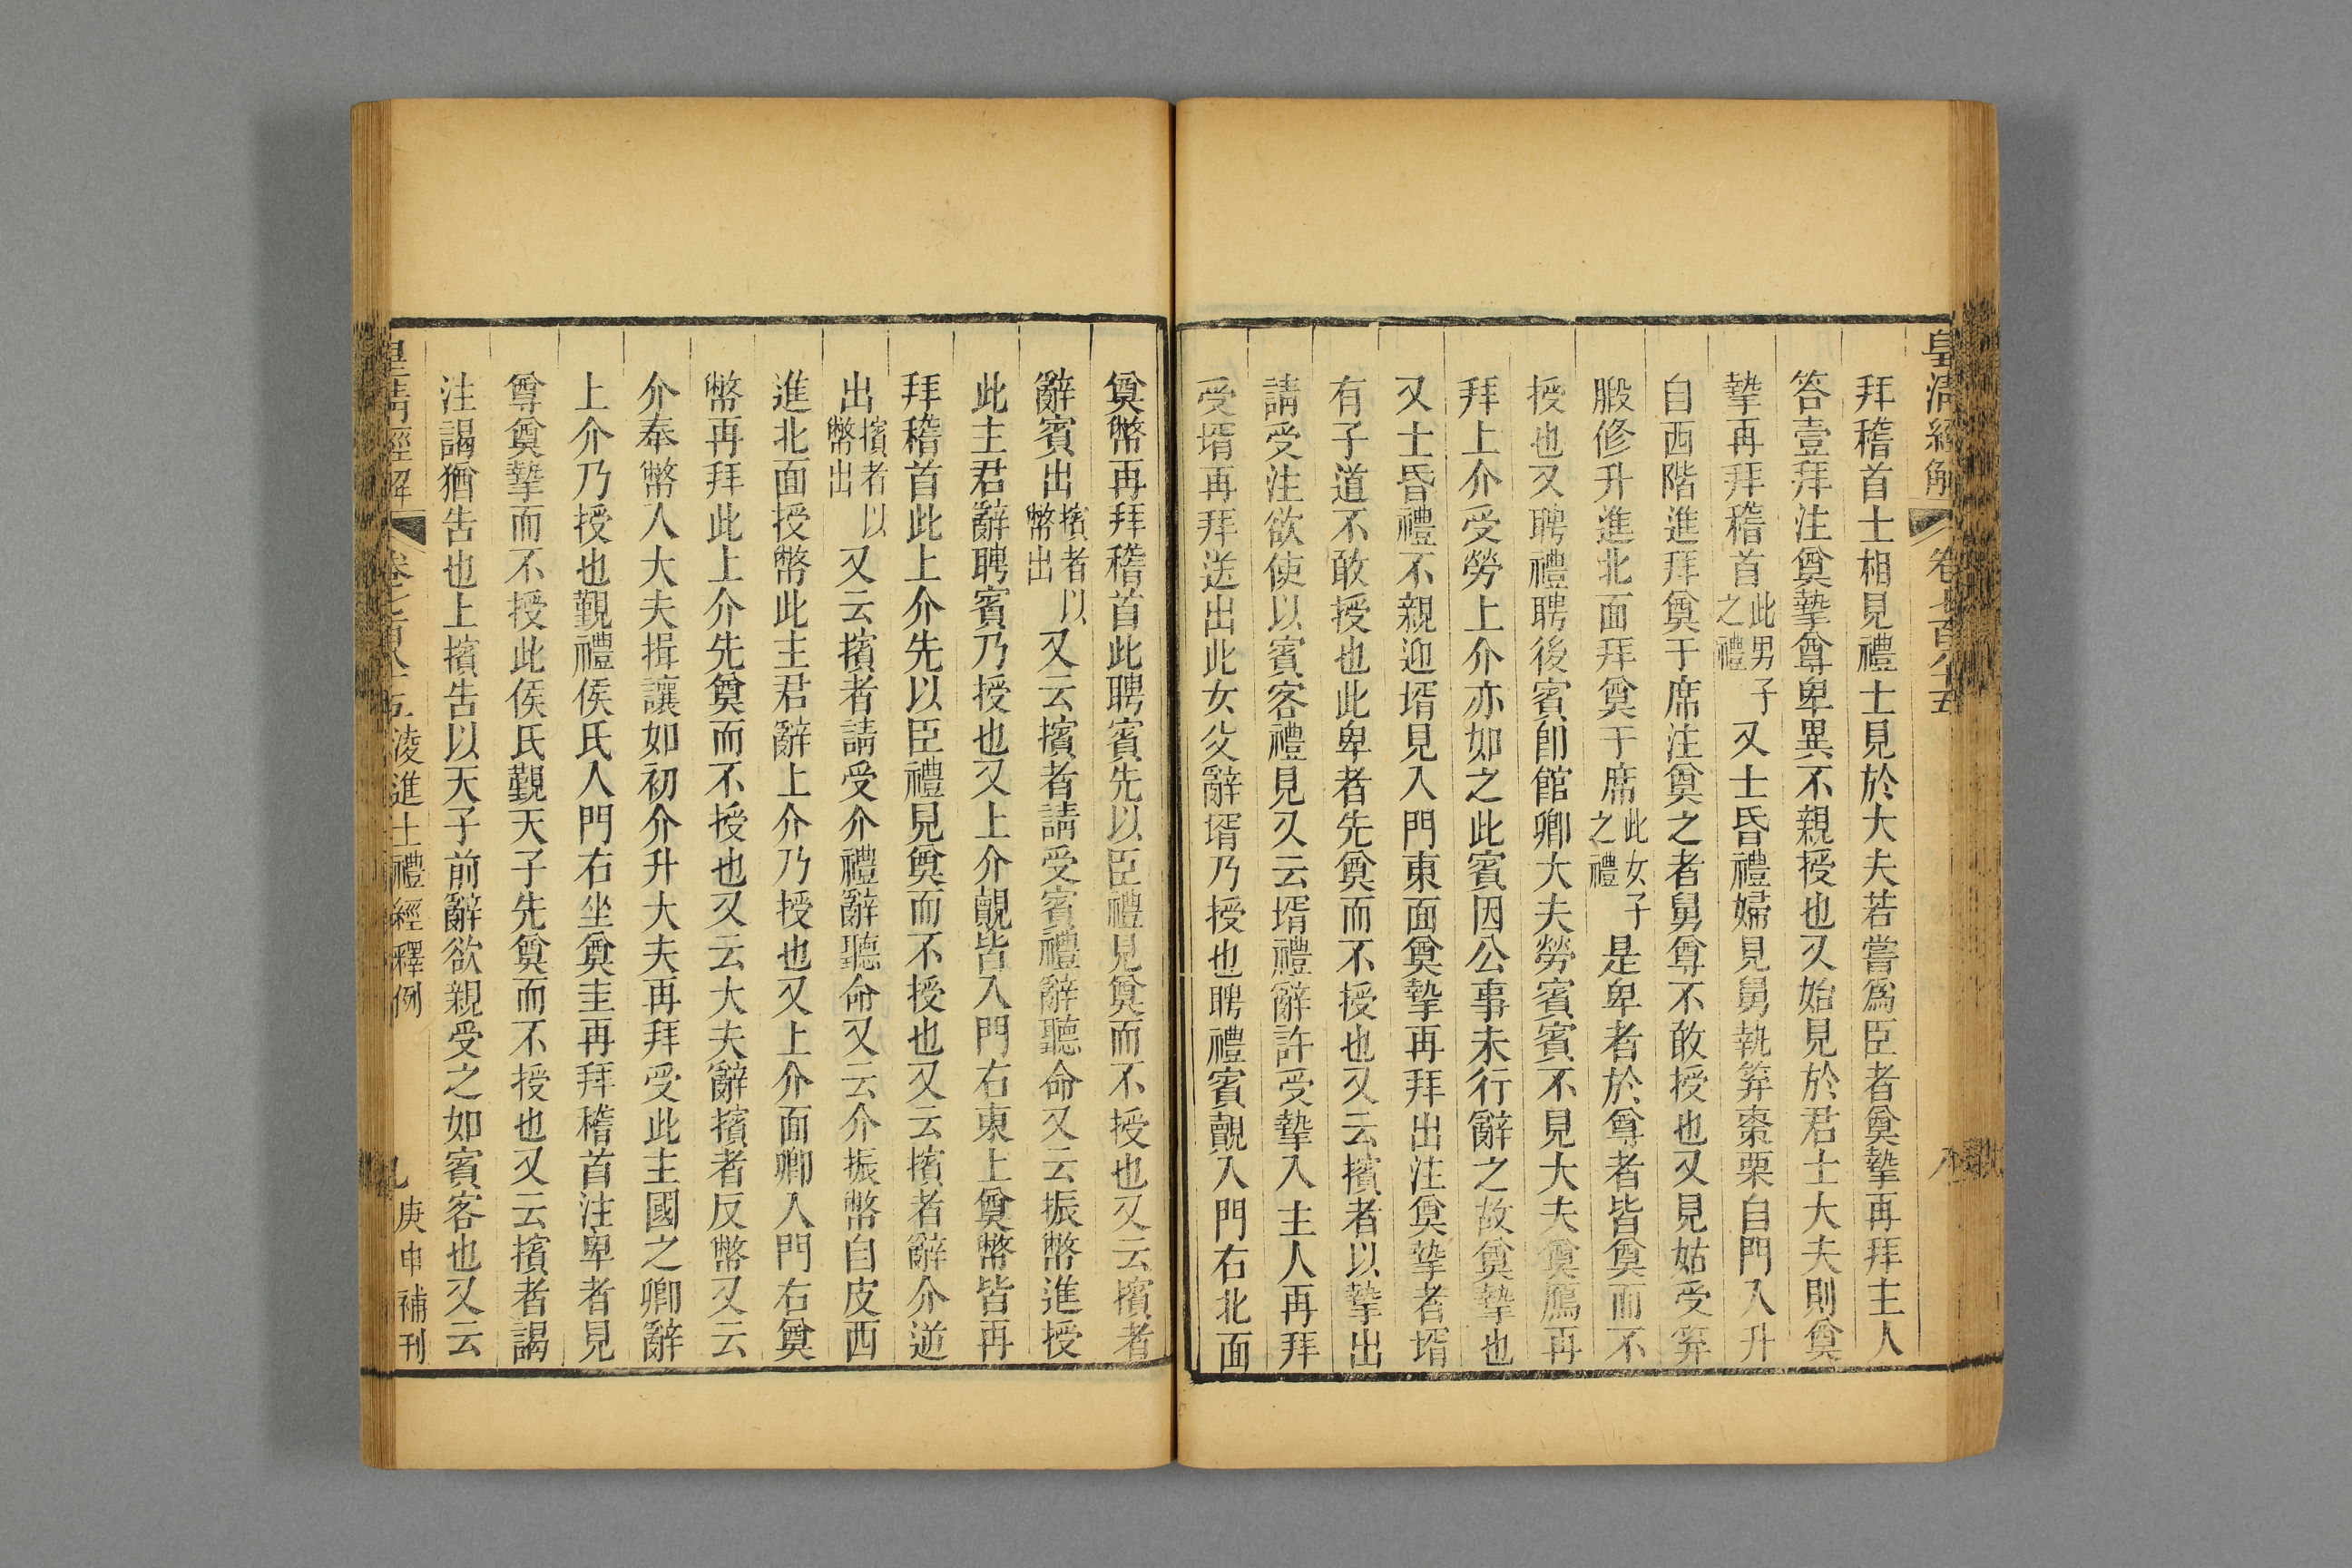 皇清經解 卷七百八十五 八
拜稽首士相見禮士見於大夫若嘗爲臣者奠摯再拜主人
答壹拜注奠摯尊卑異不親授也又始見於君士大夫則奠
摯再拜稽首此男子之禮又士昏禮婦見舅執笲棗栗自門入升
自西階進拜奠于席注奠之者舅尊不敢授也又見姑受笲
腶修升進北面拜奠于席此女子之禮是卑者於尊者皆奠而不
授也又聘禮聘後賓卽館卿大夫勞賓賓不見大夫奠鴈再
拜上介受勞上介亦如之此賓因公事未行辭之故奠摯也
又士昏禮不親迎壻見入門東面奠摯再拜出注奠摯者壻
有子道不敢授也此卑者先奠而不授也又云擯者以摯出
請受注欲使以賓客禮見又云壻禮辭許受摯入主人再拜
受壻再拜送出此女父辭壻乃授也聘禮賓覿入門右北面
奠幣再拜稽首此聘賓先以臣禮見奠而不授也又云擯者
辭賓出擯者以幣出又云擯者請受賓禮辭聽命又云振幣進授
此主君辭聘賓乃授也又上介覿皆入門右東上奠幣皆再
拜稽首此上介先以臣禮見奠而不授也又云擯者辭介逆
出擯者以幣出又云擯者請受介禮辭聽命又云介振幣自皮西
進北面授幣此主君辭上介乃授也又上介面卿入門右奠
幣再拜此上介先奠而不授也又云大夫辭擯者反幣又云
介奉幣入大夫揖讓如初介升大夫再拜受此主國之卿辭
上介乃授也覲禮侯氏入門右坐奠圭再拜稽首注卑者見
尊奠摯而不授此侯氏覲天子先奠而不授也又云擯者謁
注謁猶告也上擯告以天子前辭欲親受之如賓客也又云
皇清經解 卷七百八十五 凌進士禮經釋例 九 庚申補刊